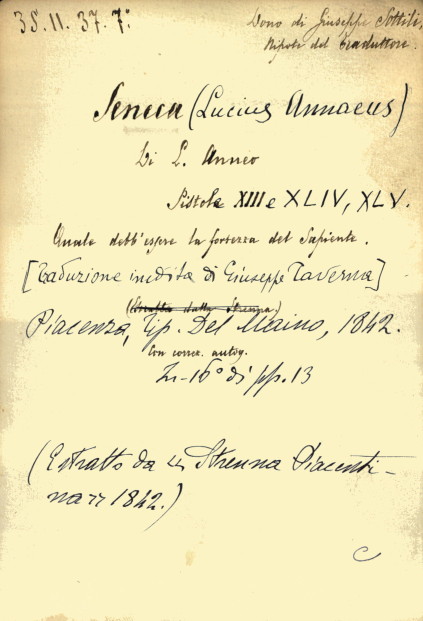 35. 11. 37. 7º
Dono di Giuseppe Sottili,
Nipote del traduttore.
Seneca (Lucius Annaeus)
Di L. Anneo
Pistole XIII e XLIV, XLV.
Quale debb'essere la fortezza del Sapiente.
[Traduzione inedita di Giuseppe Taverna]
(Estratto dalla Strenna.)
Piacenza, Tip. Del Maino, 1842.
Con correz. autog.
In-16º di pp. 13
(Estratto da « Strenna Piacenti-
na » 1842.)
C